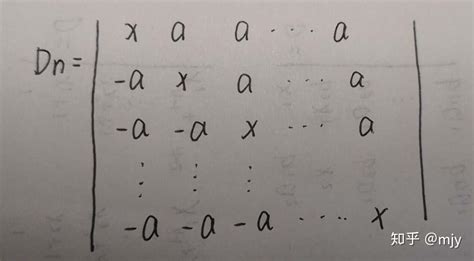 x a a ··· a
Dn=
-a x a ··· a
-a -a x ··· a
⋮ ⋮ ⋮
-a -a -a ···· x
知乎 @mjy